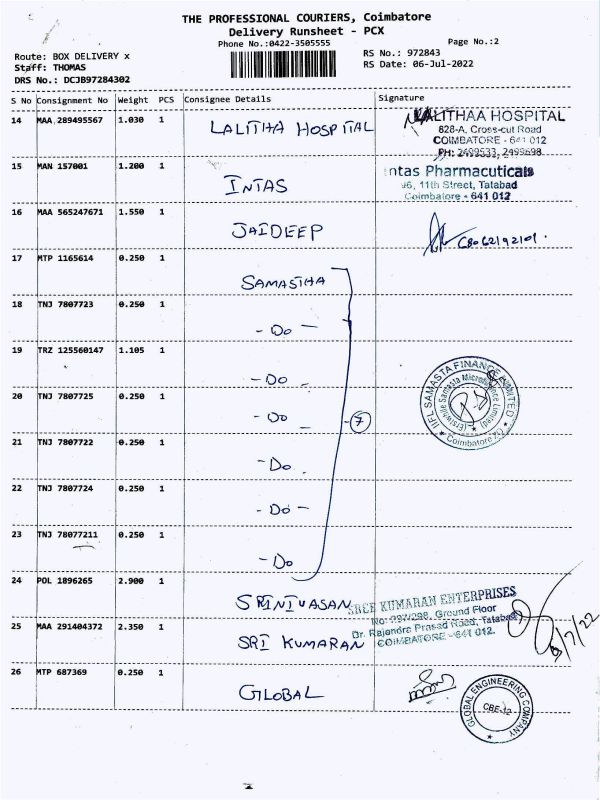 THE PROFESSIONAL COURIERS, Coimbatore
Delivery Runsheet - PCX
Phone No.:0422-3505555
Page No.:2
Route: BOX DELIVERY x
Staff: THOMAS
DRS No.: DCJB97284302
RS No.: 972843
RS Date: 06-Jul-2022
S No Consignment No Weight PCS Consignee Details Signature
14 MAA 289495567 1.030 1 LALITHA HOSPITAL
LALITHAA HOSPITAL
828-A, Cross-cut Road
COIMBATORE - 641 012
PH: 2499533, 2499698
15 MAN 157001 1.200 1 INTAS
ntas Pharmaceuticals
11th Street, Tatabad
Coimbatore - 641 012
16 MAA 565247671 1.550 1 JAIDEEP
17 MTP 1165614 0.250 1 SAMASTHA
18 TNJ 7807723 0.250 1 - Do -
19 TRZ 125560147 1.105 1 - Do -
20 TNJ 7807725 0.250 1 - Do -
7
IIFL SAMASTA FINANCE LIMITED
(Erstwhile Samasta Microfinance Limited)
Coimbatore
21 TNJ 7807722 0.250 1 - Do
22 TNJ 7807724 0.250 1 - Do -
23 TNJ 78077211 0.250 1 - Do
24 POL 1896265 2.900 1 SRINIVASAN
SREE KUMARAN ENTERPRISES
Ground Floor
Dr. Rajendra Prasad Road, Tatabad
COIMBATORE - 641 012.
25 MAA 291404372 2.350 1 SRI KUMARAN
26 MTP 687369 0.250 1 GLOBAL
GLOBAL ENGINEERING COMPANY
CBE-12